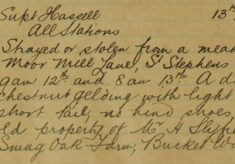 Supt Haseell 13th
All Stations
Strayed or stolen from a mead
Moor Mill Lane, St Stephens
9am 12th and 8am 13th A d
chestnut gelding with light
short tail, no hind shoes
old property of Mr H
Smug Oak Farm, Bucket W